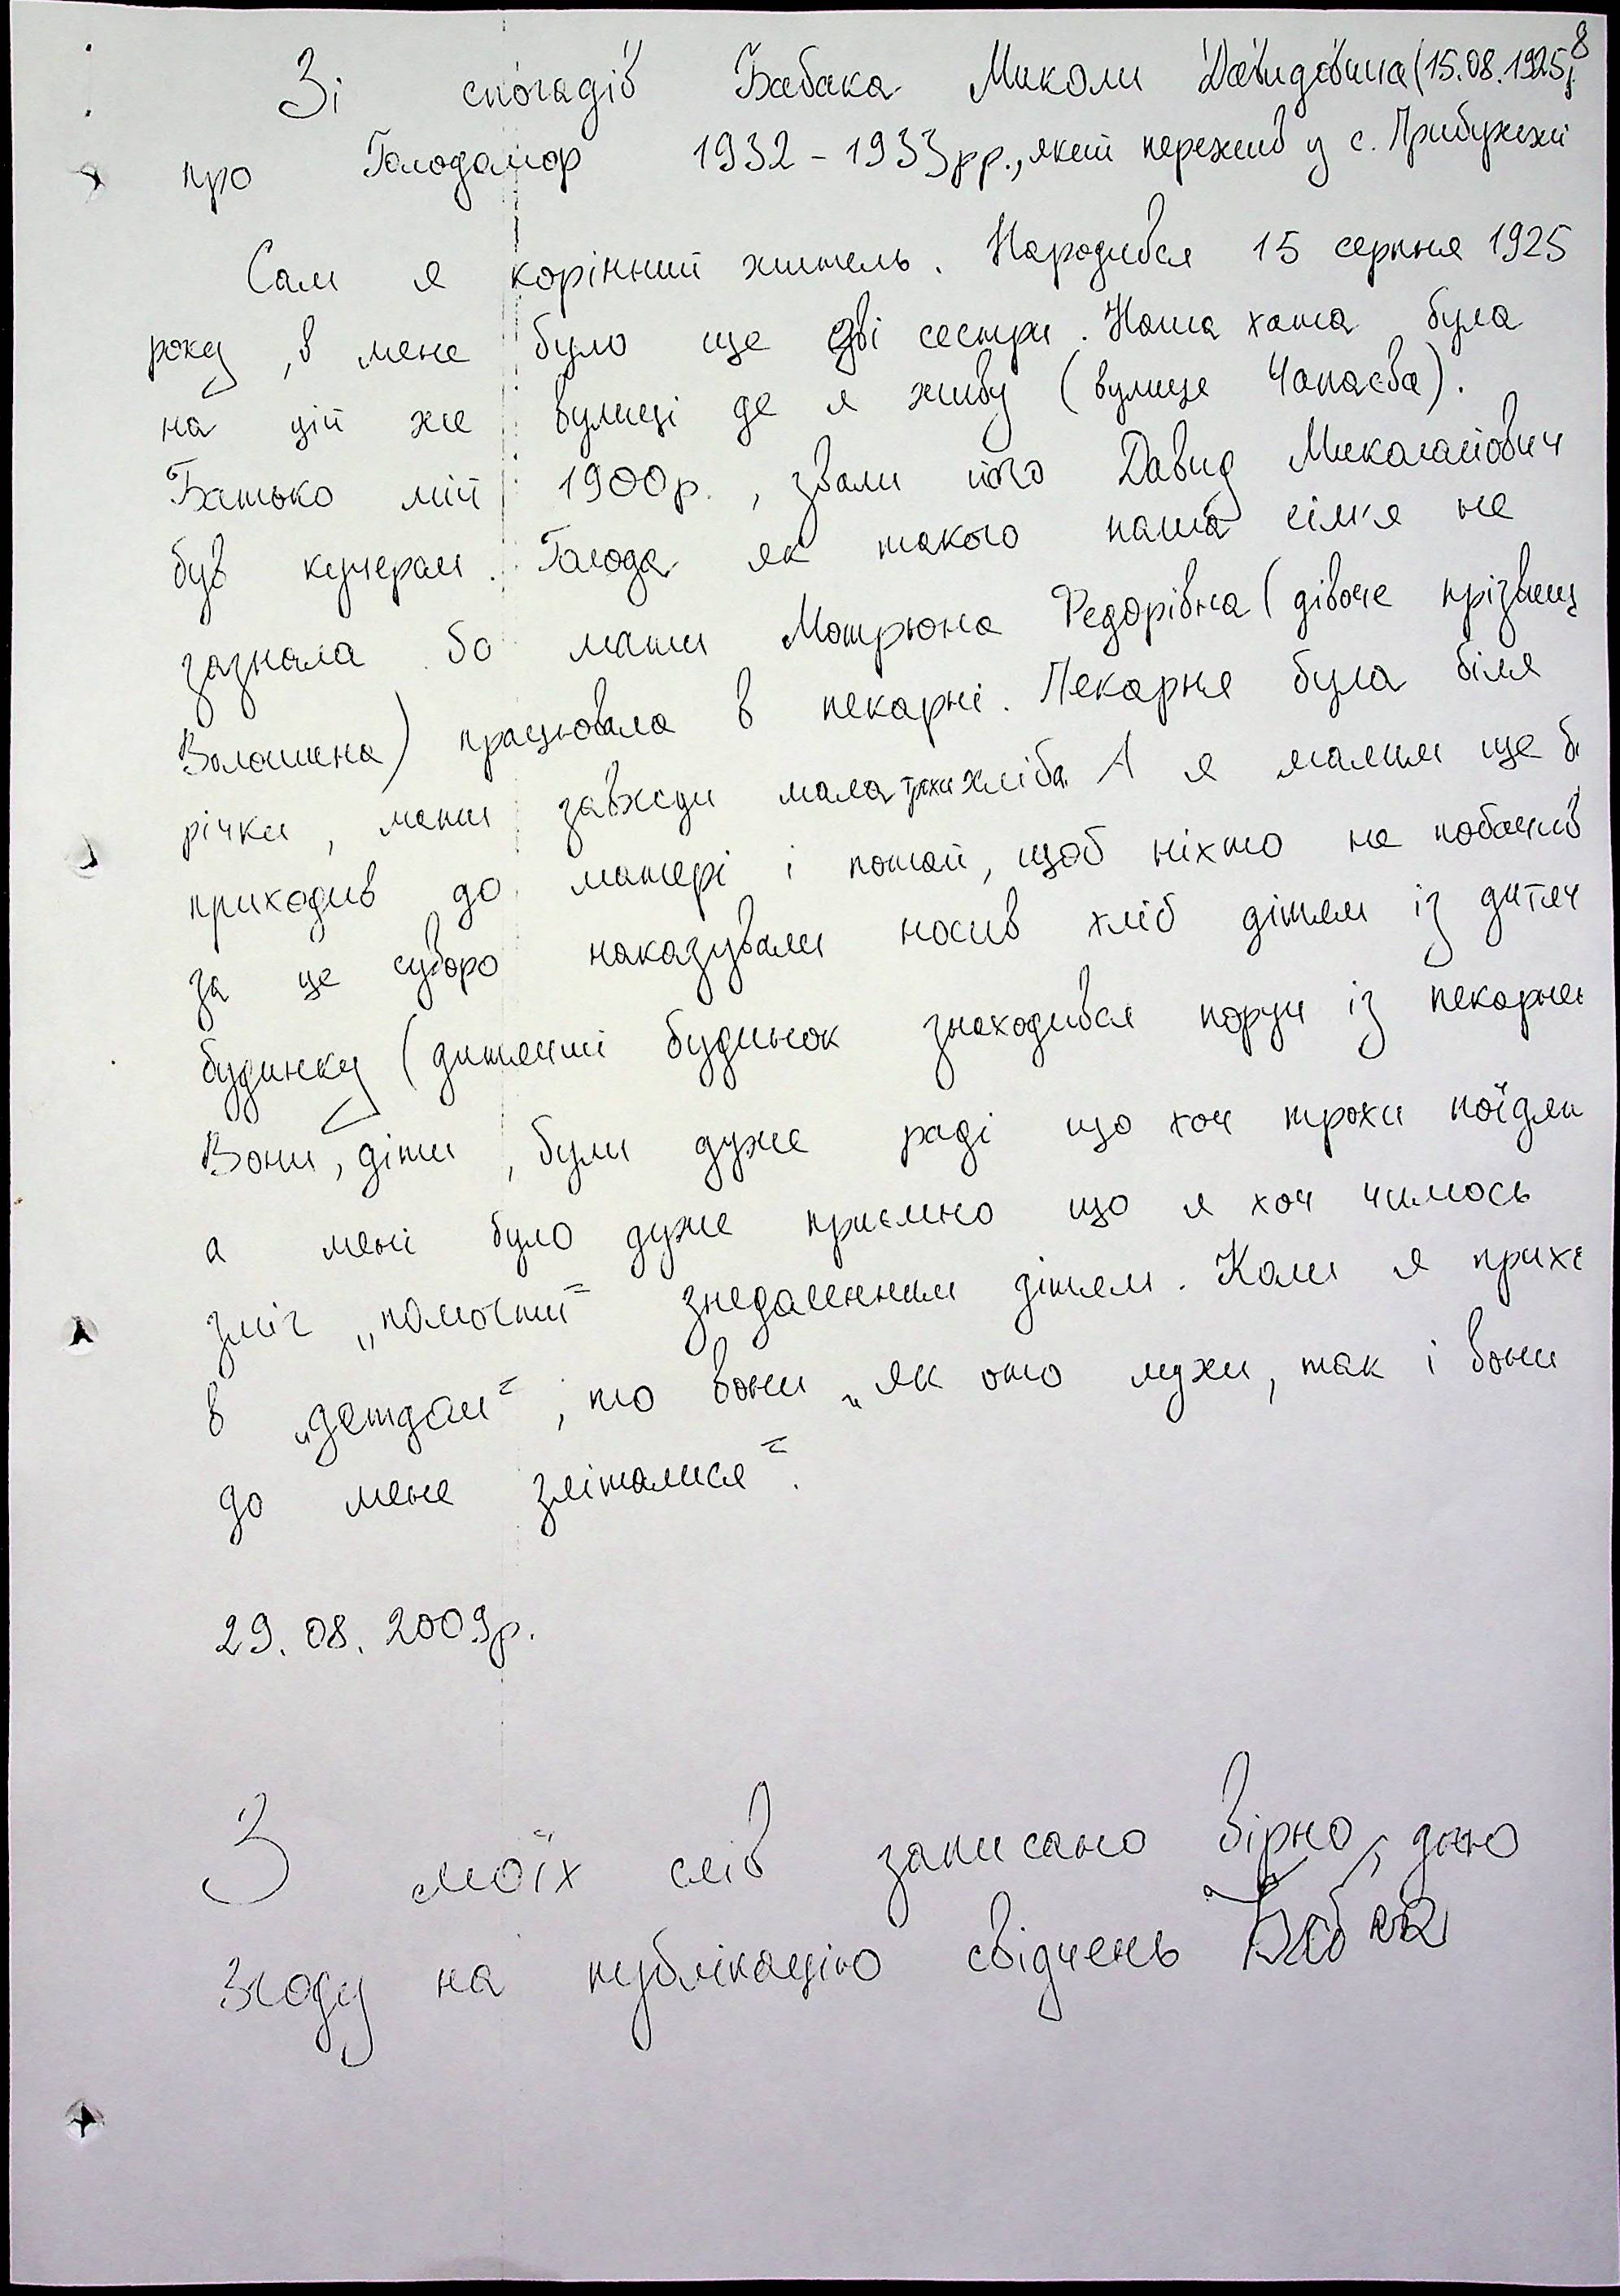 8
Зі спогадів Бабака Миколи Давидовича (15.08.1925р
про Голодомор 1932-1933рр., який пережив у с. Прибужжі
Сам я корінний житель. Народився 15 серпня 1925
року, в мене було ще дві сестри. Наша хата була
на цій же вулиці де я живу (вулиця Чапаєва).
Батько мій 1900р., звали його Давид Миколайович
був кучером. Голода як такого наша сім'я не
зазнала бо мати Мотрьона Федорівна (дівоче прізвищ
Волошина) працювала в пекарні. Пекарня була біля
річки, мати завжди мала трохи хліба. А я малим ще б
приходив до матері і потай, щоб ніхто не побачив
за це суворо наказували носив хліб дітям із дитяч
будинку (дитячий будинок знаходився поруч із пекарнею
Вони, діти, були дуже раді що хоч трохи поїдят
а мені було дуже приємно що я хоч чимось
зміг „помогти" знедоленним дітям. Коли я прихо
в „детдом", то вони „як ото мухи, так і вони
до мене зліталися".
29.08.2009р.
З моїх слів записано вірно, даю
згоду на публікацію свідчень Бабак